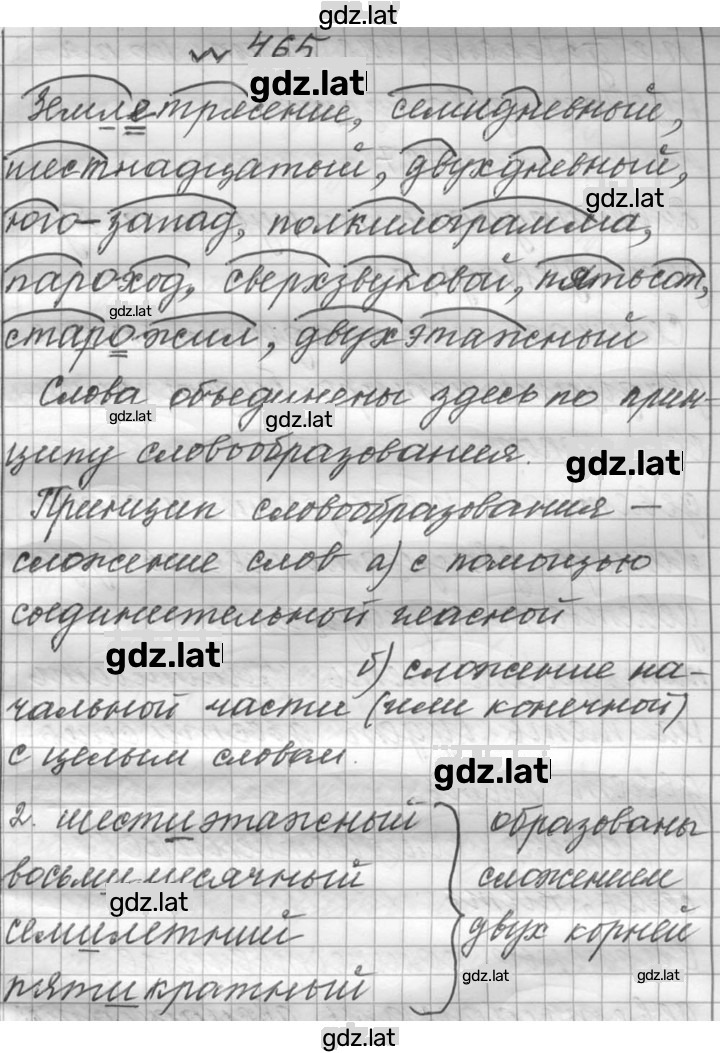 gdz.lat
№ 465
gdz.lat
Землетрясение, семидневный,
шестнадцатый, двухдневный,
gdz.lat
юго-запад, полкилограмма,
пароход, сверхзвуковой, пятьсот,
gdz.lat
старожил, двухэтажный
Слова объединены здесь по прин-
gdz.lat gdz.lat
ципу словообразования.
gdz.lat
Принцип словообразования —
сложение слов а) с помощью
соединительной гласной
gdz.lat
б) сложение на-
чальной части (или конечной)
с целым словом.
gdz.lat
2. шестиэтажный образованы
восьмимесячный сложением
gdz.lat
семилетний двух корней
gdz.lat gdz.lat
пятикратный
gdz.lat